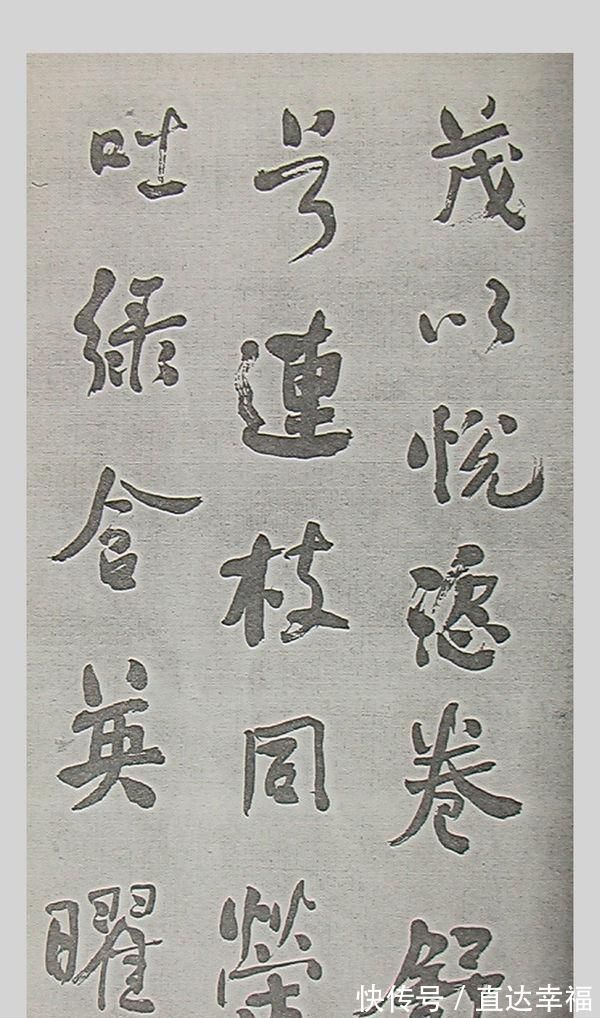 茂以悅卷舒
兮連枝同榮
吐綠含英曜
快传号 / 直达幸福